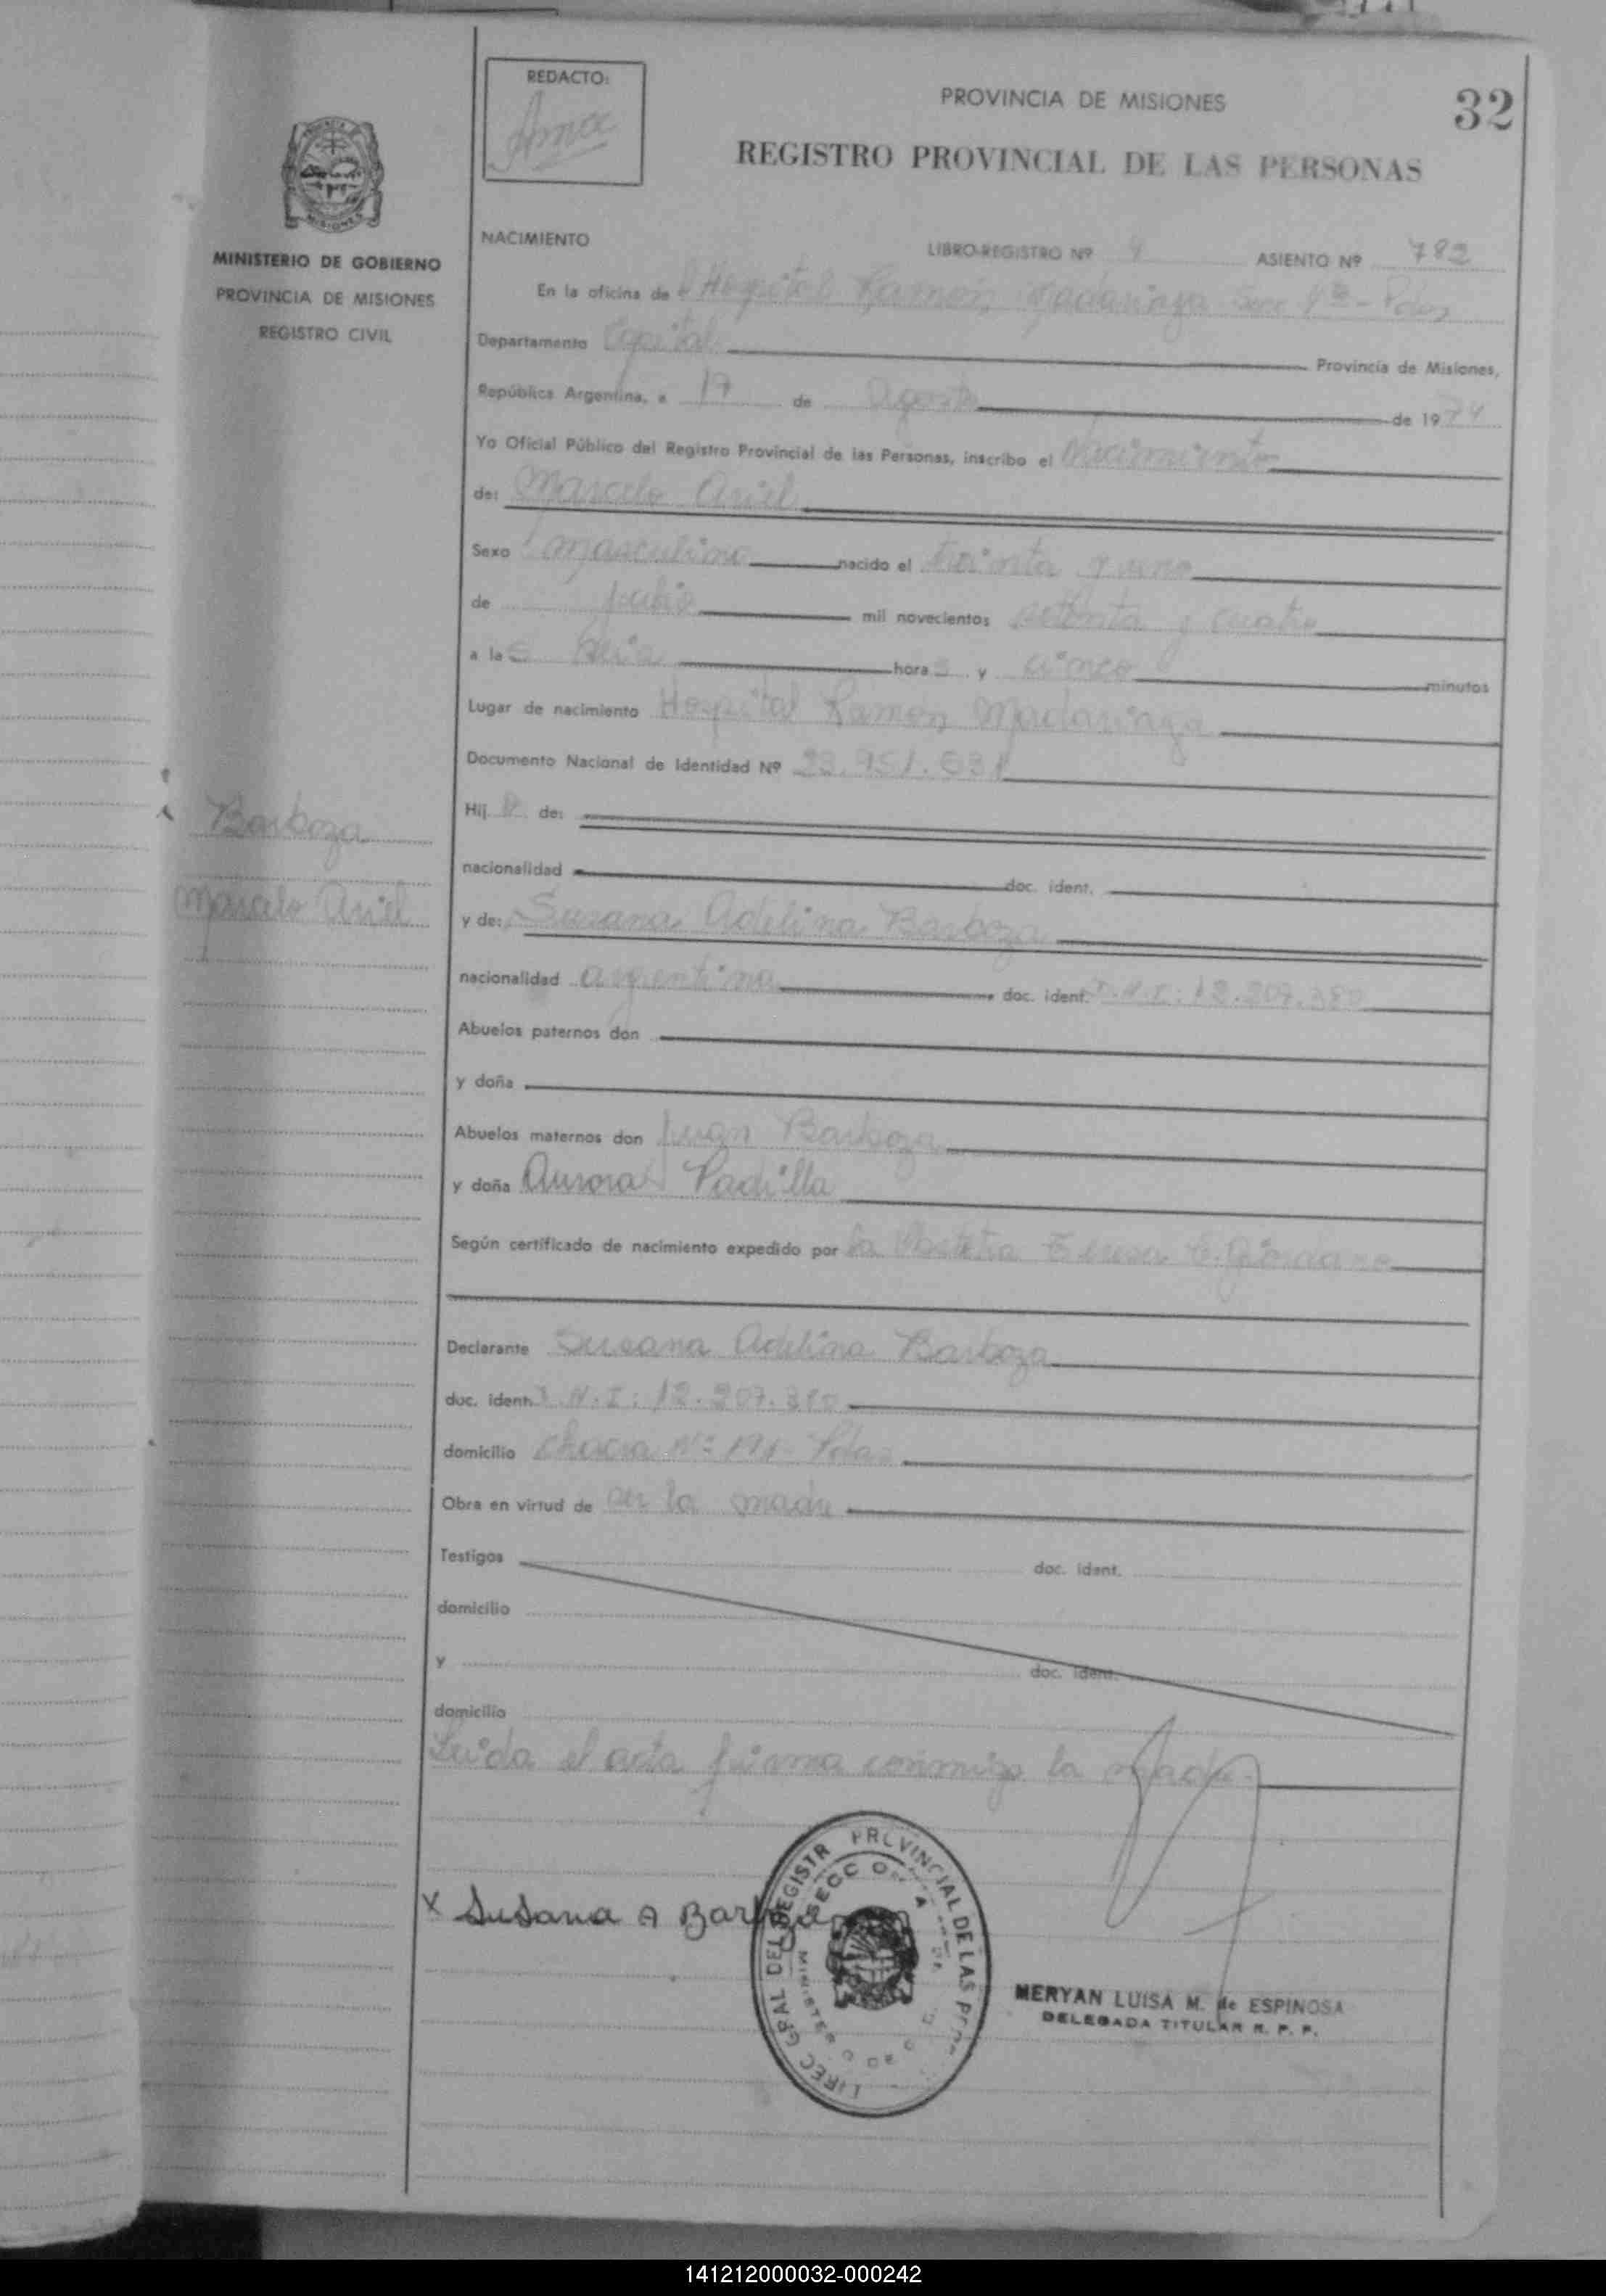 REDACTO:
PROVINCIA DE MISIONES
32
REGISTRO PROVINCIAL DE LAS PERSONAS
MINISTERIO DE GOBIERNO
PROVINCIA DE MISIONES
REGISTRO CIVIL
NACIMIENTO
LIBRO-REGISTRO Nº ASIENTO Nº 782
En la oficina del Hospital Ramón Madariaga Secc Pdas
Departamento Capital Provincia de Misiones,
República Argentina, a 17 de agosto de 1974
Yo Oficial Público del Registro Provincial de las Personas, inscribo el Nacimiento
de: Marcelo Ariel
Sexo masculino nacido el treinta y uno
de julio mil novecientos setenta y cuatro
a las seis horas y cinco minutos
Lugar de nacimiento Hospital Ramón Madariaga
Documento Nacional de Identidad Nº 23.951.631
Hij o de:
Barboza
Marcelo Ariel
nacionalidad doc. ident.
y de: Susana Adelina Barboza
nacionalidad argentina doc. ident. D.N.I: 12.207.380
Abuelos paternos don
y doña
Abuelos maternos don Juan Barboza
y doña Aurora Padilla
Según certificado de nacimiento expedido por la Partera Teresa
Declarante Susana Adelina Barboza
doc. ident. D.N.I: 12.207.380
domicilio Chacra Nº 191 Pdas
Obra en virtud de ser la madre
Testigos doc. ident.
domicilio
y doc. ident.
domicilio
Leida el acta firma conmigo la madre.
x Susana A Barboza
DIREC GRAL DEL REGISTR PROVINCIAL DE LAS
MERYAN LUISA M. de ESPINOSA
DELEGADA TITULAR R. P. P.
141212000032-000242